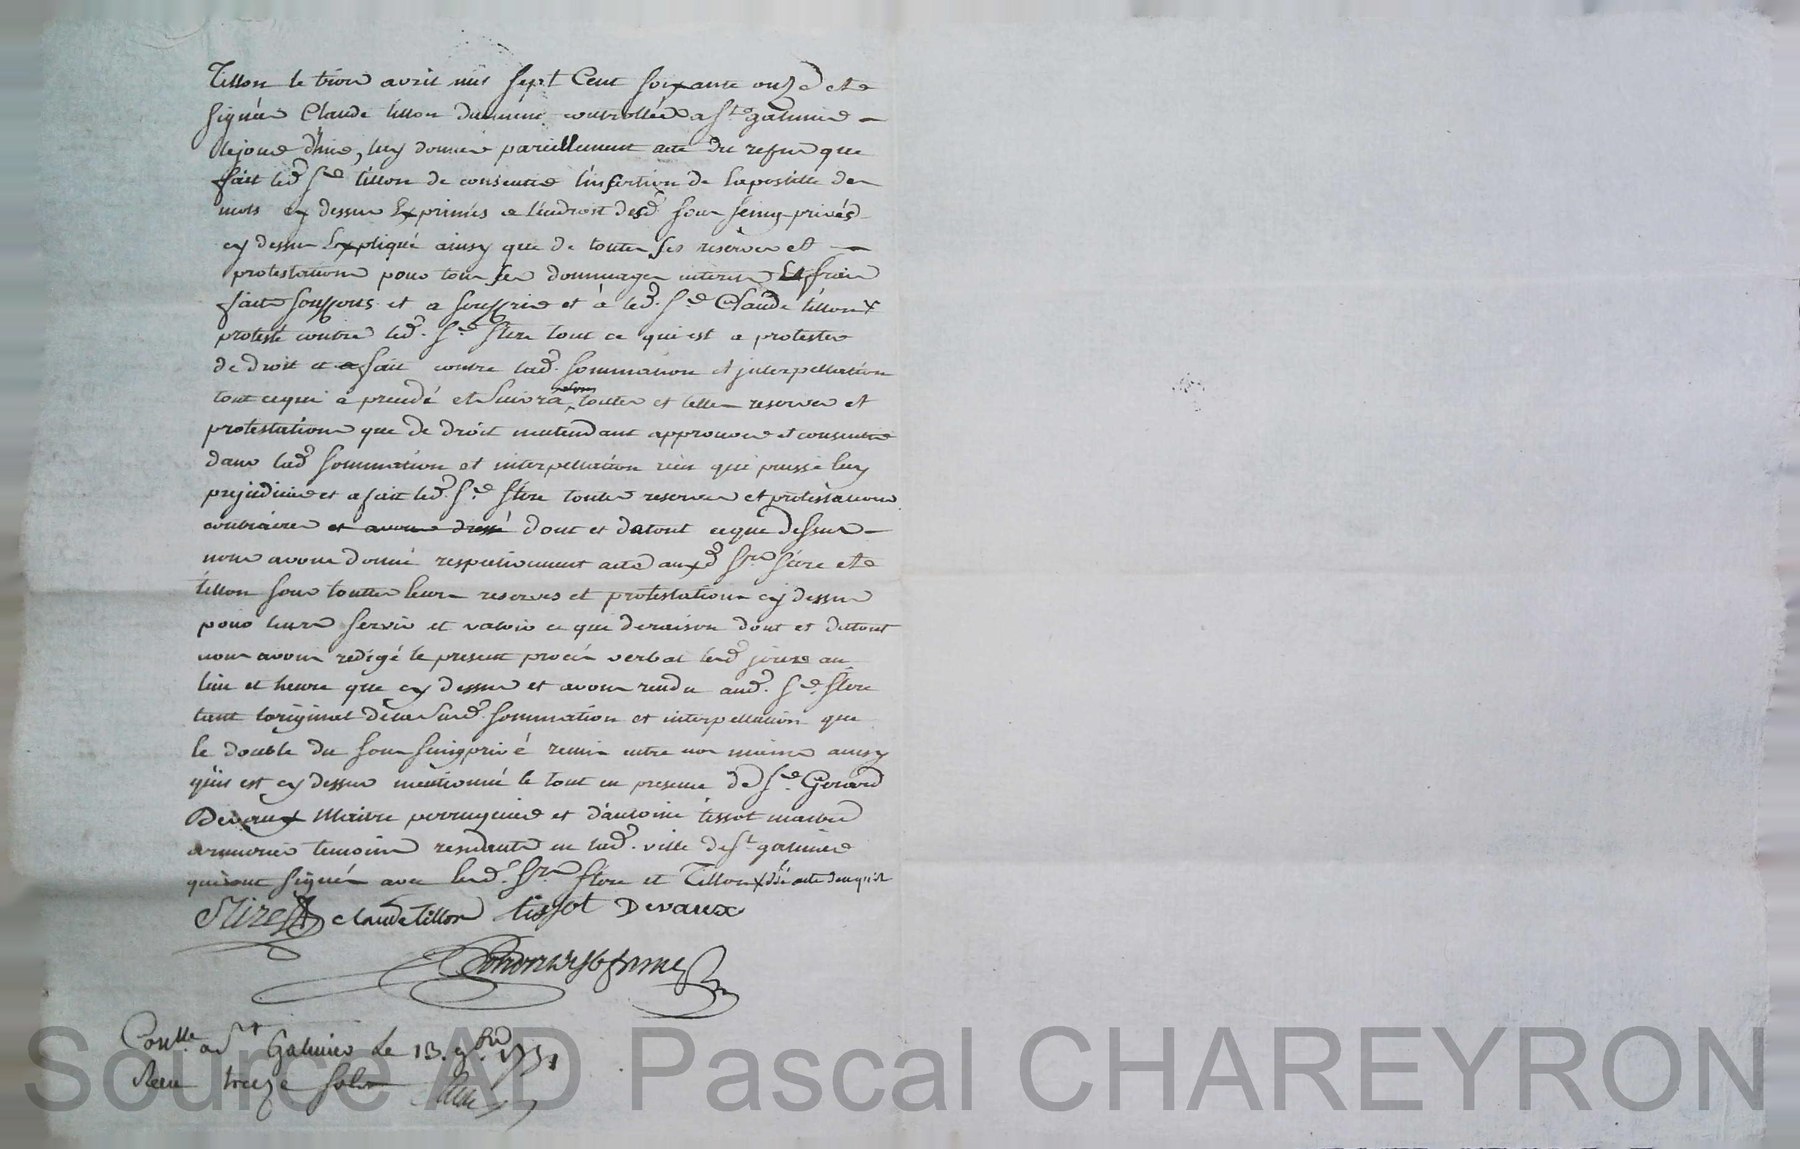 Tillon le trois avril mil sept Cent soixante onze et
signée Claude tillon dument controllée a St galmier
le jour d'hier, luy donner pareillement acte du refus que
fait led. Sr. tillon de consentir l'insertion de l'apostille des
mots cy dessus Exprimés a l'endroit desd. sous seings privés
cy dessus Expliqué ainsy que de toutes ses reserves et
protestations pour tous les dommages interets Et frais
faits soufferts et a souffrir et à led. Sr. Claude tillon x
protesté contre led. Sr. Stère tout ce qui est a protester
de droit et a fait contre lad. sommation et interpellation
tout ce qui a precedé et suivra sous toutes et telles reserves et
protestations que de droit n'entendant approuver et consentir
dans lad. sommation et interpellation rien qui puisse luy
prejudicier et a fait led. Sr. Stère toutes reserves et protestations
contraires et avons dressé dont et du tout ce que dessus
nous avons donné respectivement acte auxd. Srs. Stère et
tillon sous toutes leurs reserves et protestations cy dessus
pour leurs servir et valoir ce que de raison dont et du tout
nous avons redigé le present procés verbal lesd. jour au
lieu et heure que cy dessus et avons rendu aud. Sr. Stère
tant l'original de la susd. sommation et interpellation que
le double du sous seing privé remis entre nos mains ainsy
qu'il est cy dessus mentionné le tout en presence de Sr. Gerard
Devaux Maitre perruquier et d'antoine tissot maitre
armurier temoins residents en lad. ville de St. galmier
qui ont signés avec lesd. Srs. Stère et Tillon x
claude tillon tissot Devaux
Conlle. a St Galmier le 13. 9bre 1771
Recu treize sols
Source AD Pascal CHAREYRON